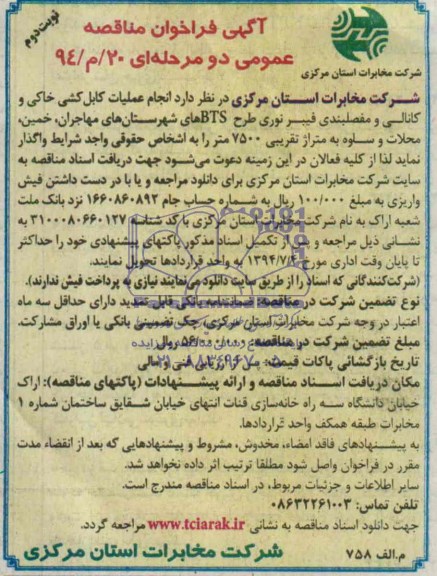 نوبت دوم
آگهی فراخوان مناقصه
عمومی دو مرحله‌ای ۲۰/م/۹٤
شرکت مخابرات استان مرکزی
شرکت مخابرات استان مرکزی در نظر دارد انجام عملیات کابل‌کشی خاکی و
کانالی و مفصلبندی فیبر نوری طرح BTSهای شهرستان‌های مهاجران، خمین،
محلات و ساوه به متراژ تقریبی ۷۵۰۰ متر را به اشخاص حقوقی واجد شرایط واگذار
نماید لذا از کلیه فعالان در این زمینه دعوت می‌شود جهت دریافت اسناد مناقصه به
سایت شرکت مخابرات استان مرکزی برای دانلود مراجعه و یا با در دست داشتن فیش
واریزی به مبلغ ۱۰۰/۰۰۰ ریال به شماره حساب جام ۱۶۶۰۸۶۰۸۹۲ نزد بانک ملت
شعبه اراک به نام شرکت مخابرات استان مرکزی با کد شناسه ۳۱۰۰۰۸۰۶۶۰۱۲۷ به
نشانی ذیل مراجعه و پس از تکمیل اسناد مذکور پاکتهای پیشنهادی خود را حداکثر
تا پایان وقت اداری مورخ ۱۳۹۴/۷/۴ به واحد قراردادها تحویل نمایند.
(شرکت‌کنندگانی که اسناد را از طریق سایت دانلود می‌نمایند نیازی به پرداخت فیش ندارند).
نوع تضمین شرکت در مناقصه: ضمانتنامه بانکی قابل تمدید دارای حداقل سه ماه
اعتبار در وجه شرکت مخابرات استان مرکزی، چک تضمینی بانکی یا اوراق مشارکت.
مبلغ تضمین شرکت در مناقصه: ریال
تاریخ بازگشائی پاکات قیمت: پس از ارزیابی فنی و مالی
مکان دریافت اسناد مناقصه و ارائه پیشنهادات (پاکتهای مناقصه): اراک
خیابان دانشگاه سه راه خانه‌سازی قنات انتهای خیابان شقایق ساختمان شماره ۱
مخابرات طبقه همکف واحد قراردادها.
به پیشنهادهای فاقد امضاء، مخدوش، مشروط و پیشنهادهایی که بعد از انقضاء مدت
مقرر در فراخوان واصل شود مطلقا ترتیب اثر داده نخواهد شد.
سایر اطلاعات و جزئیات مربوط، در اسناد مناقصه مندرج است.
تلفن تماس: ۰۸۶۳۲۲۶۱۰۰۳
جهت دانلود اسناد مناقصه به نشانی www.tciarak.ir مراجعه گردد.
م.الف ۷۵۸
شرکت مخابرات استان مرکزی